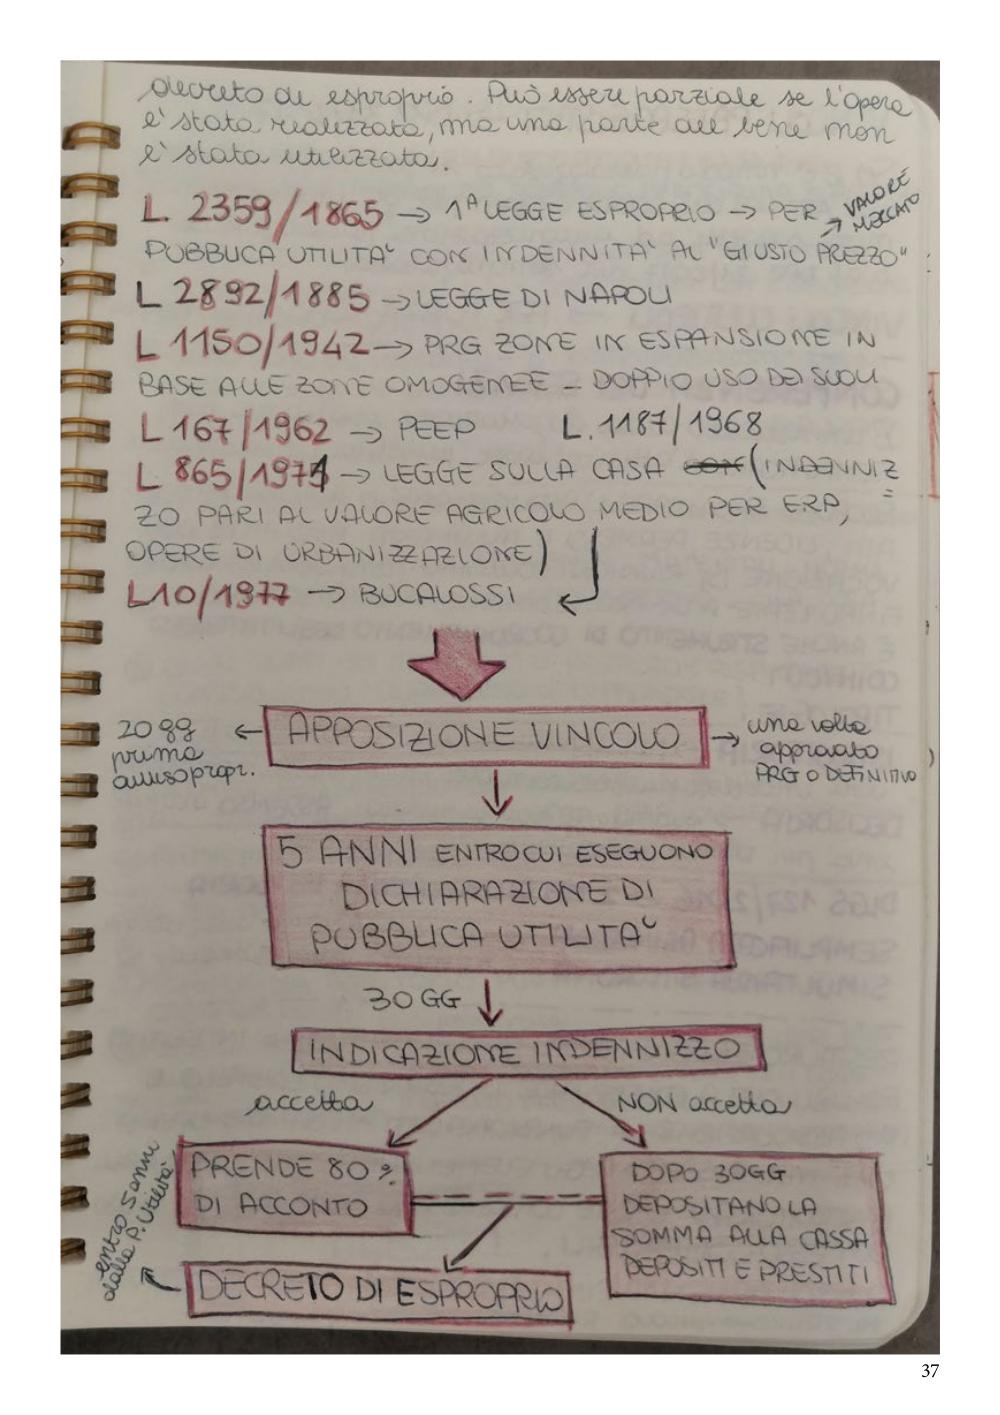 decreto di esproprio. Può essere parziale se l'opera
è stata realizzata, ma una parte del bene non
è stata utilizzata.
L. 2359/1865 → 1ᴬ LEGGE ESPROPRIO → PER
→ VALORE
MERCATO
PUBBLICA UTILITÀ CON INDENNITÀ AL "GIUSTO PREZZO"
L 2892/1885 → LEGGE DI NAPOLI
L 1150/1942 → PRG ZONE IN ESPANSIONE IN
BASE ALLE ZONE OMOGENEE – DOPPIO USO DEI SUOLI
L 167/1962 → PEEP L. 1187/1968
L. 865/1971 → LEGGE SULLA CASA (INDENNIZ=
ZO PARI AL VALORE AGRICOLO MEDIO PER ERP,
OPERE DI URBANIZZAZIONE)
L10/1977 → BUCALOSSI
APPOSIZIONE VINCOLO
20gg
prima
avviso propr.
una volta
approvato
PRG O DEFINITIVO
5 ANNI ENTRO CUI ESEGUONO
DICHIARAZIONE DI
PUBBLICA UTILITÀ
30 GG
INDICAZIONE INDENNIZZO
accetta
NON accetta
PRENDE 80%
DI ACCONTO
DOPO 30GG
DEPOSITANO LA
SOMMA ALLA CASSA
DEPOSITI E PRESTITI
entro 5 anni
dalla P. Utilità
DECRETO DI ESPROPRIO
37